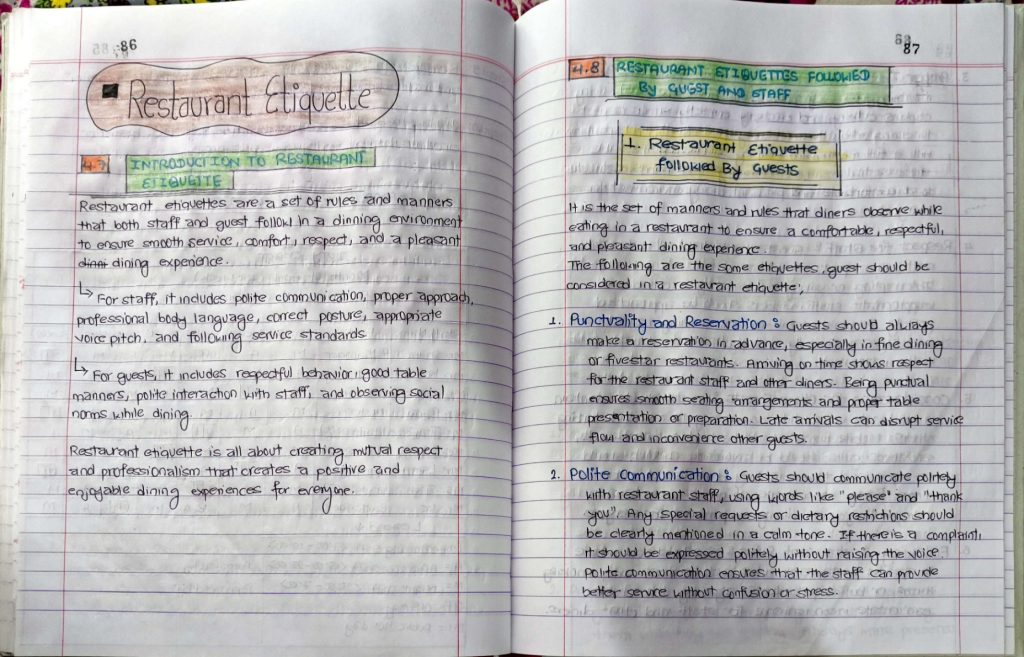 86
Restaurant Etiquette
4.7 INTRODUCTION TO RESTAURANT
ETIQUETTE
Restaurant etiquettes are a set of rules and manners
that both staff and guest follow in a dinning environment
to ensure smooth service, comfort, respect, and a pleasant
dining experience.
For staff, it includes polite communication, proper approach,
professional body language, correct posture, appropriate
voice pitch, and following service standards.
For guests, it includes respectful behavior, good table
manners, polite interaction with staff, and observing social
norms while dining.
Restaurant etiquette is all about creating mutual respect
and professionalism that creates a positive and
enjoyable dining experiences for everyone.
87
4.8 RESTAURANT ETIQUETTES FOLLOWED
By GUEST AND STAFF
1. Restaurant Etiquette
followed By Guests
It is the set of manners and rules that diners observe while
eating in a restaurant to ensure a comfortable, respectful,
and pleasant dining experience.
The following are the some etiquettes, guest should be
considered in a restaurant etiquette;
1. Punctuality and Reservation : Guests should always
make a reservation in advance, especially in fine dining
or fivestar restaurants. Arriving on time shows respect
for the restaurant staff and other diners. Being punctual
ensures smooth seating arrangements and proper table
presentation or preparation. Late arrivals can disrupt service
flow and inconvenience other guests.
2. Polite Communication : Guests should communicate politely
with restaurant staff, using words like "please" and "thank
you". Any special requests or dietary restrictions should
be clearly mentioned in a calm tone. If there is a complaint,
it should be expressed politely without raising the voice.
polite communication ensures that the staff can provide
better service without confusion or stress.